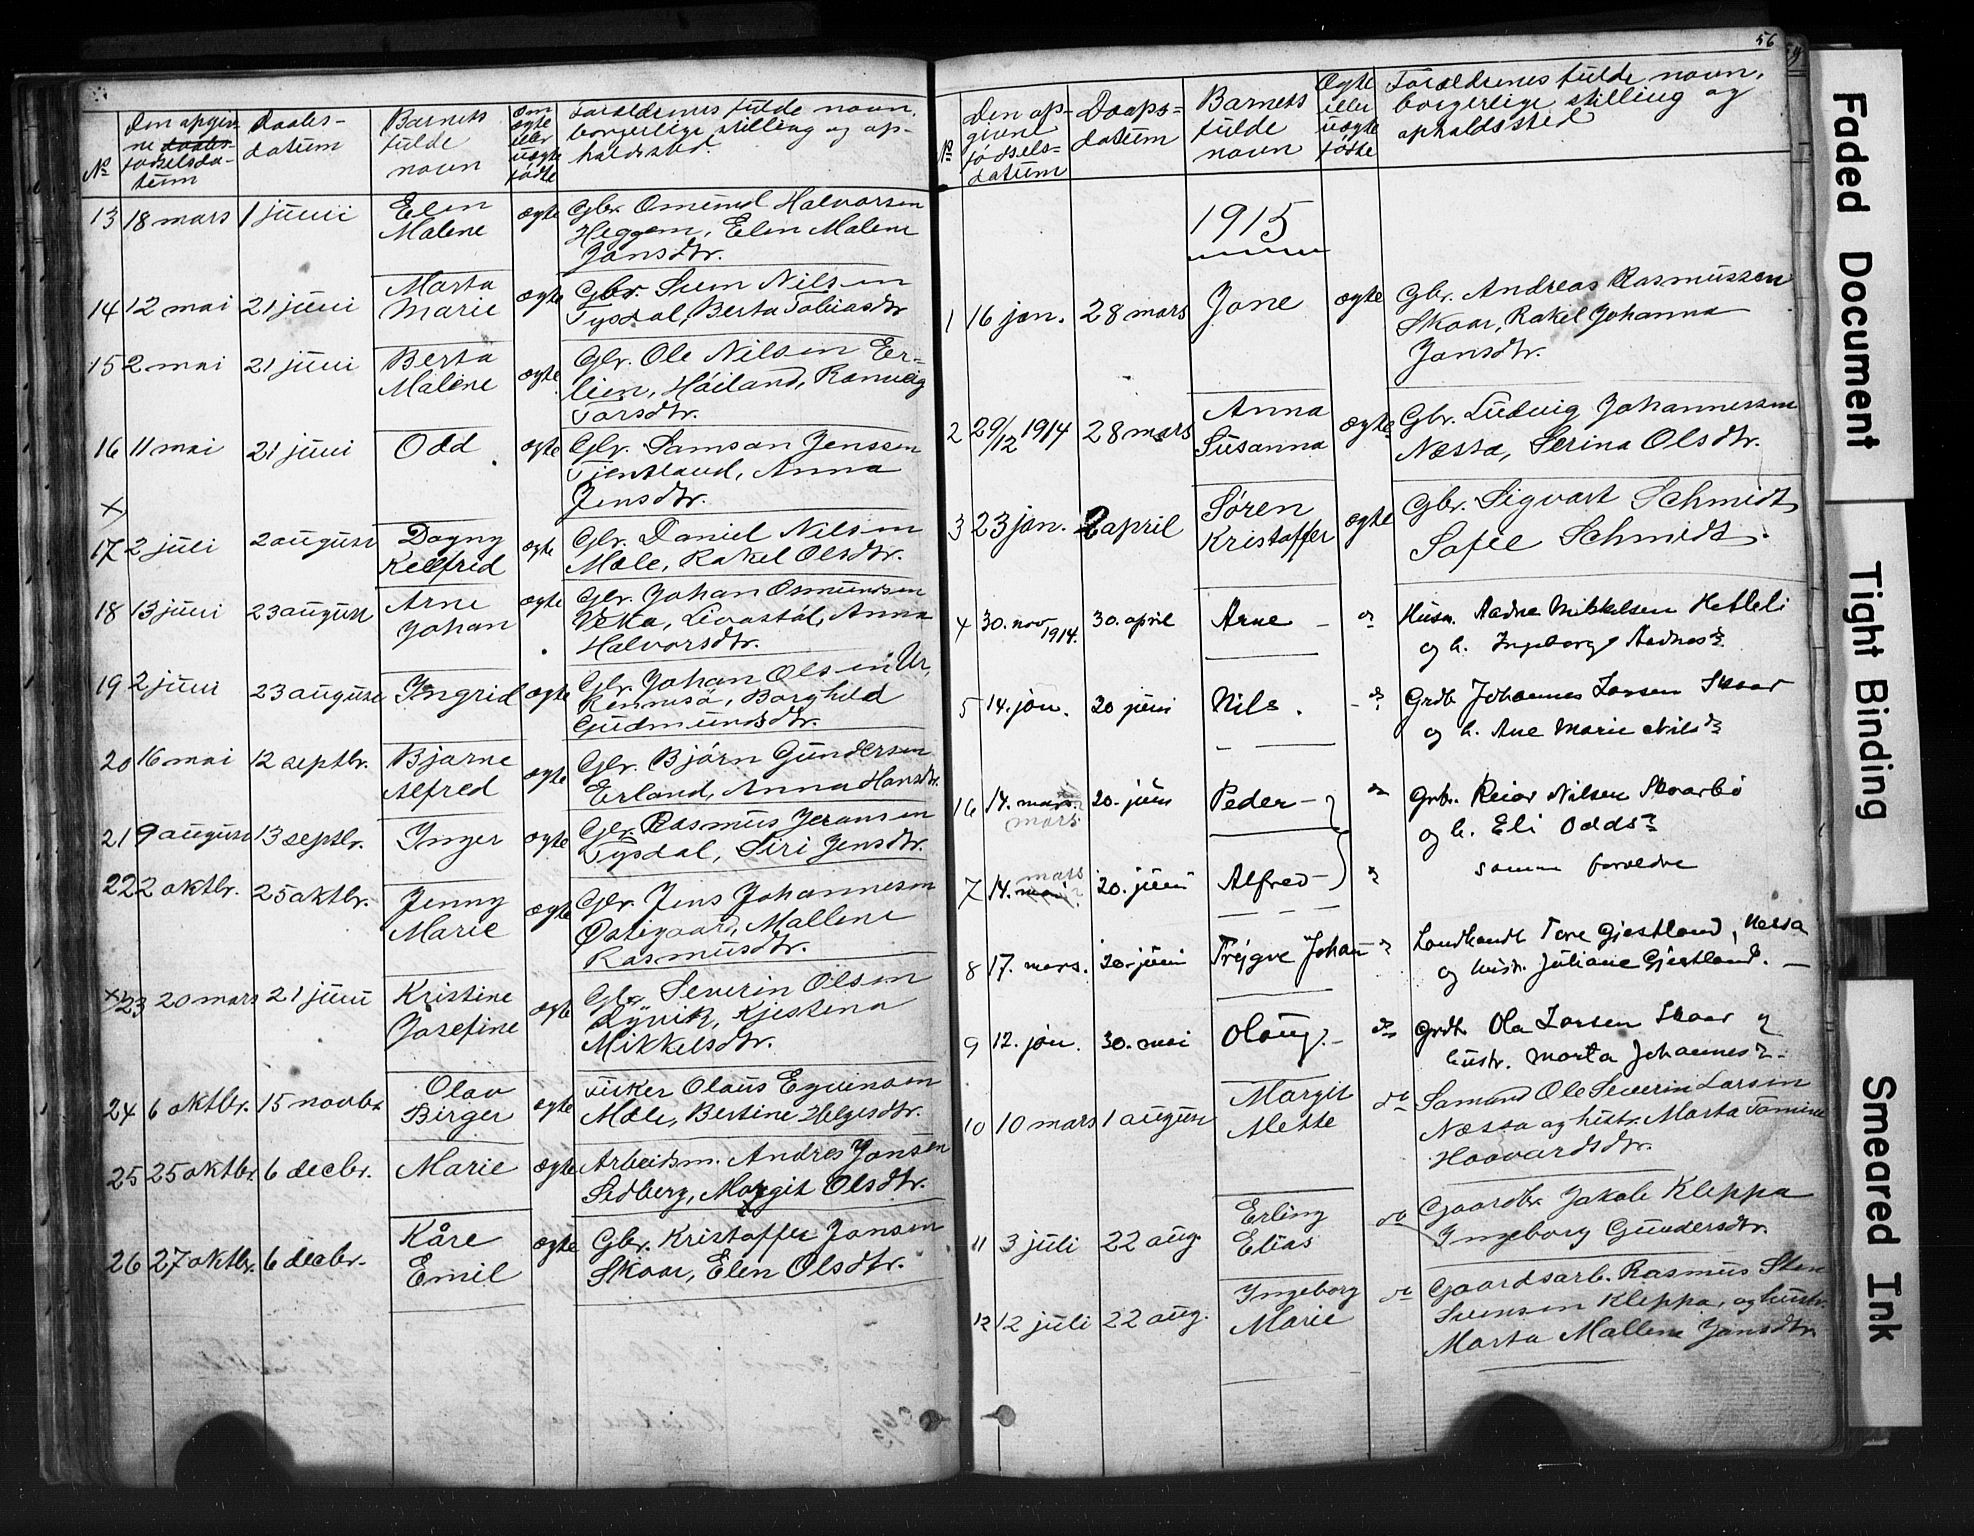 No
Den opgiv-
ne daabs-
fødselsda-
tum
Daabs-
datum
Barnets
fulde
navn
Om
ægte
eller
uægte
fødte
Forældrenes fulde navn,
borgerlige stilling og op-
holdssted.
13 18 mars 1 juni Elen Malene ægte Gbr. Omund Halvorsen
Heggem, Elen Malene
Jonsdtr.
14 12 mai 21 juni Marta Marie ægte Gbr. Sven Nilsen
Tysdal, Berta Tobiasdtr
15 2 mai 21 juni Berta Malene ægte Gbr. Ole Nilsen Eer-
lien, Høiland, Ranveig
Torsdtr.
16 11 mai 21 juni Odd ægte Gbr. Samson Jenssen
Tjentland, Anna
Jensdtr.
X
17 2 juli 2 august Dagny ægte Gbr. Daniel Nilsen
Møle, Rakel Olsdtr.
18 13 juni 23 august Arne Johan ægte Gbr. Johan Osmundsen
Livastøl, Anna
Halvorsdtr.
19 2 juni 23 august Ingrid ægte Gbr. Johan Olsen Ur,
Rennesø, Borghild
Gudmundsdtr.
20 16 mai 12 septbr. Bjarne Alfred ægte Gbr. Bjørn Gundersen
Erland, Anna Hansdtr.
21 9 august 13 septbr. Inger ægte Gbr. Rasmus Jeransen
Tysdal, Siri Jensdtr.
22 2 oktbr. 25 oktbr. Jenny Marie ægte Gbr. Jens Johannesen
Østegaard, Mallene
Rasmusdtr.
X 23 20 mars 21 juni Kristine Josefine ægte Gbr Severin Olsen
Kjestena
Mikkelsdtr.
24 6 oktbr. 15 novbr Olav Birger ægte Olaus Eyvinsen
Møle, Bertine Helgesdtr.
25 25 oktbr. 6 decbr. Marie ægte Arbeidsm. Andres Jonsen
Sedberg, Margit Olsdtr.
26 27 oktbr. 6 decbr. Kåre Emil ægte Gbr. Kristoffer Jonsen
Skaar, Elen Olsdtr.
56
No
Den op-
givne
fødsels-
datum
Daaps-
datum
Barnets
fulde
navn
Ægte
eller
uægte
fødte
Forældrenes fulde navn,
borgerlige stilling og
opholdssted
1915
1 16 jan. 28 mars Jone ægte Gbr. Andreas Rasmussen
Skaar, Rakel Johanna
Jonsdtr.
2 29/12 1914 28 mars Anna Susanna ægte Gbr. Ludvig Johannessen
Nessa, Serina Olsdtr.
3 23 jan. 2 april Søren Kristoffer ægte Gbr. Sigvart Schmidt
Sofie Schmidt.
4 30. nov 1914. 30. april Arne do Husm. Aadne Mikkelsen Hetleli
og h. Ingeborg Aadnesdr
5 14. jan. 20 juni Nils. do Grdb. Johannes Larsen Skaar
og h. Ane Marie Nilsdr
16 14. mars 20. juni Peder do Grb. Reiar Nilsen Skaarbø
mars
og h. Eli Oddsdr
7 14. mai mars 20. juni Alfred do samme forældre
8 17. mars. 20. juni Trygve Johan do Landhandl. Tore Gjestland, Nessa
og hustr. Juliane Gjestland.
9 12. jan. 30. mai Olaug. do Grdb. Ola Larsen Skaar og
hustr. Marta Johannesdr
10 10 mars 1 august Margit Mette do Sømand Ole Severin Larsen
Næssa og hustr. Marta Tomine
Haavardsdtr.
11 3 juli 22 aug. Erling Elias do Gaardbr. Jakob Kleppa
Ingeborg Gundersdtr.
12 12 juli 22 aug. Ingeborg Marie do Gaardsarb. Rasmus Sten
Svensen Kleppa, og hustr.
Marta Mallene Jonsdtr.
Faded Document
Tight Binding
Smeared Ink